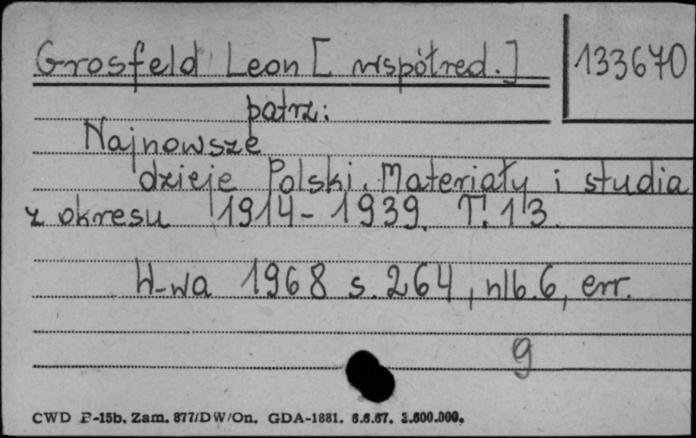 Grosfeld Leon [współred.] 133670
patrz:
Najnowsze
dzieje Polski. Materiały i studia
z okresu 1914-1939. T. 13.
W-wa 1968 s. 264, nlb. 6, err.
g
CWD P-15b. Zam. 877/DW/On. GDA-1881. 6.6.67. 3.600.000.